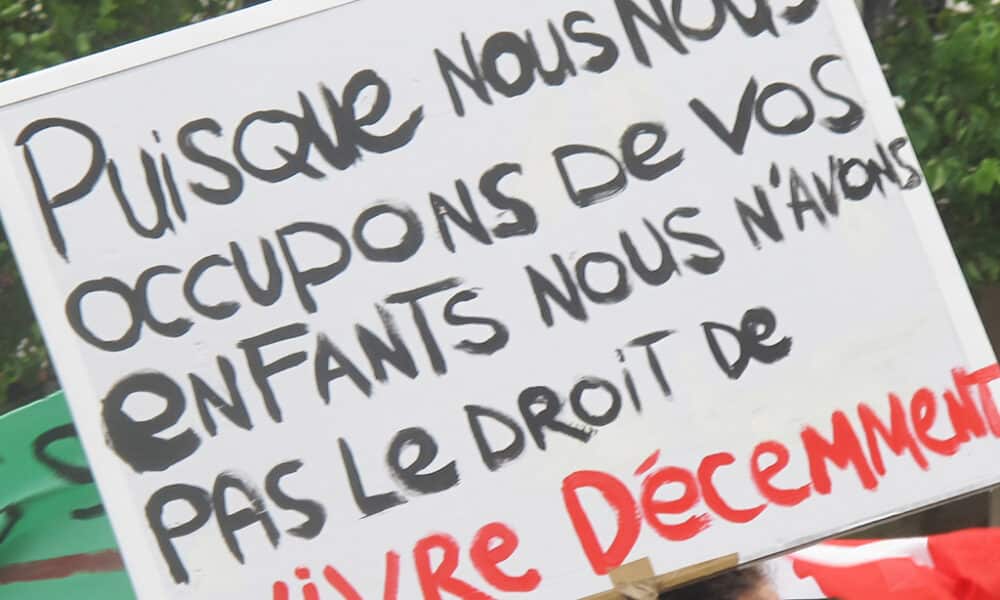 PUISQUE NOUS NOUS
OCCUPONS DE VOS
ENFANTS NOUS N'AVONS
PAS LE DROIT DE
VIVRE DÉCEMMENT